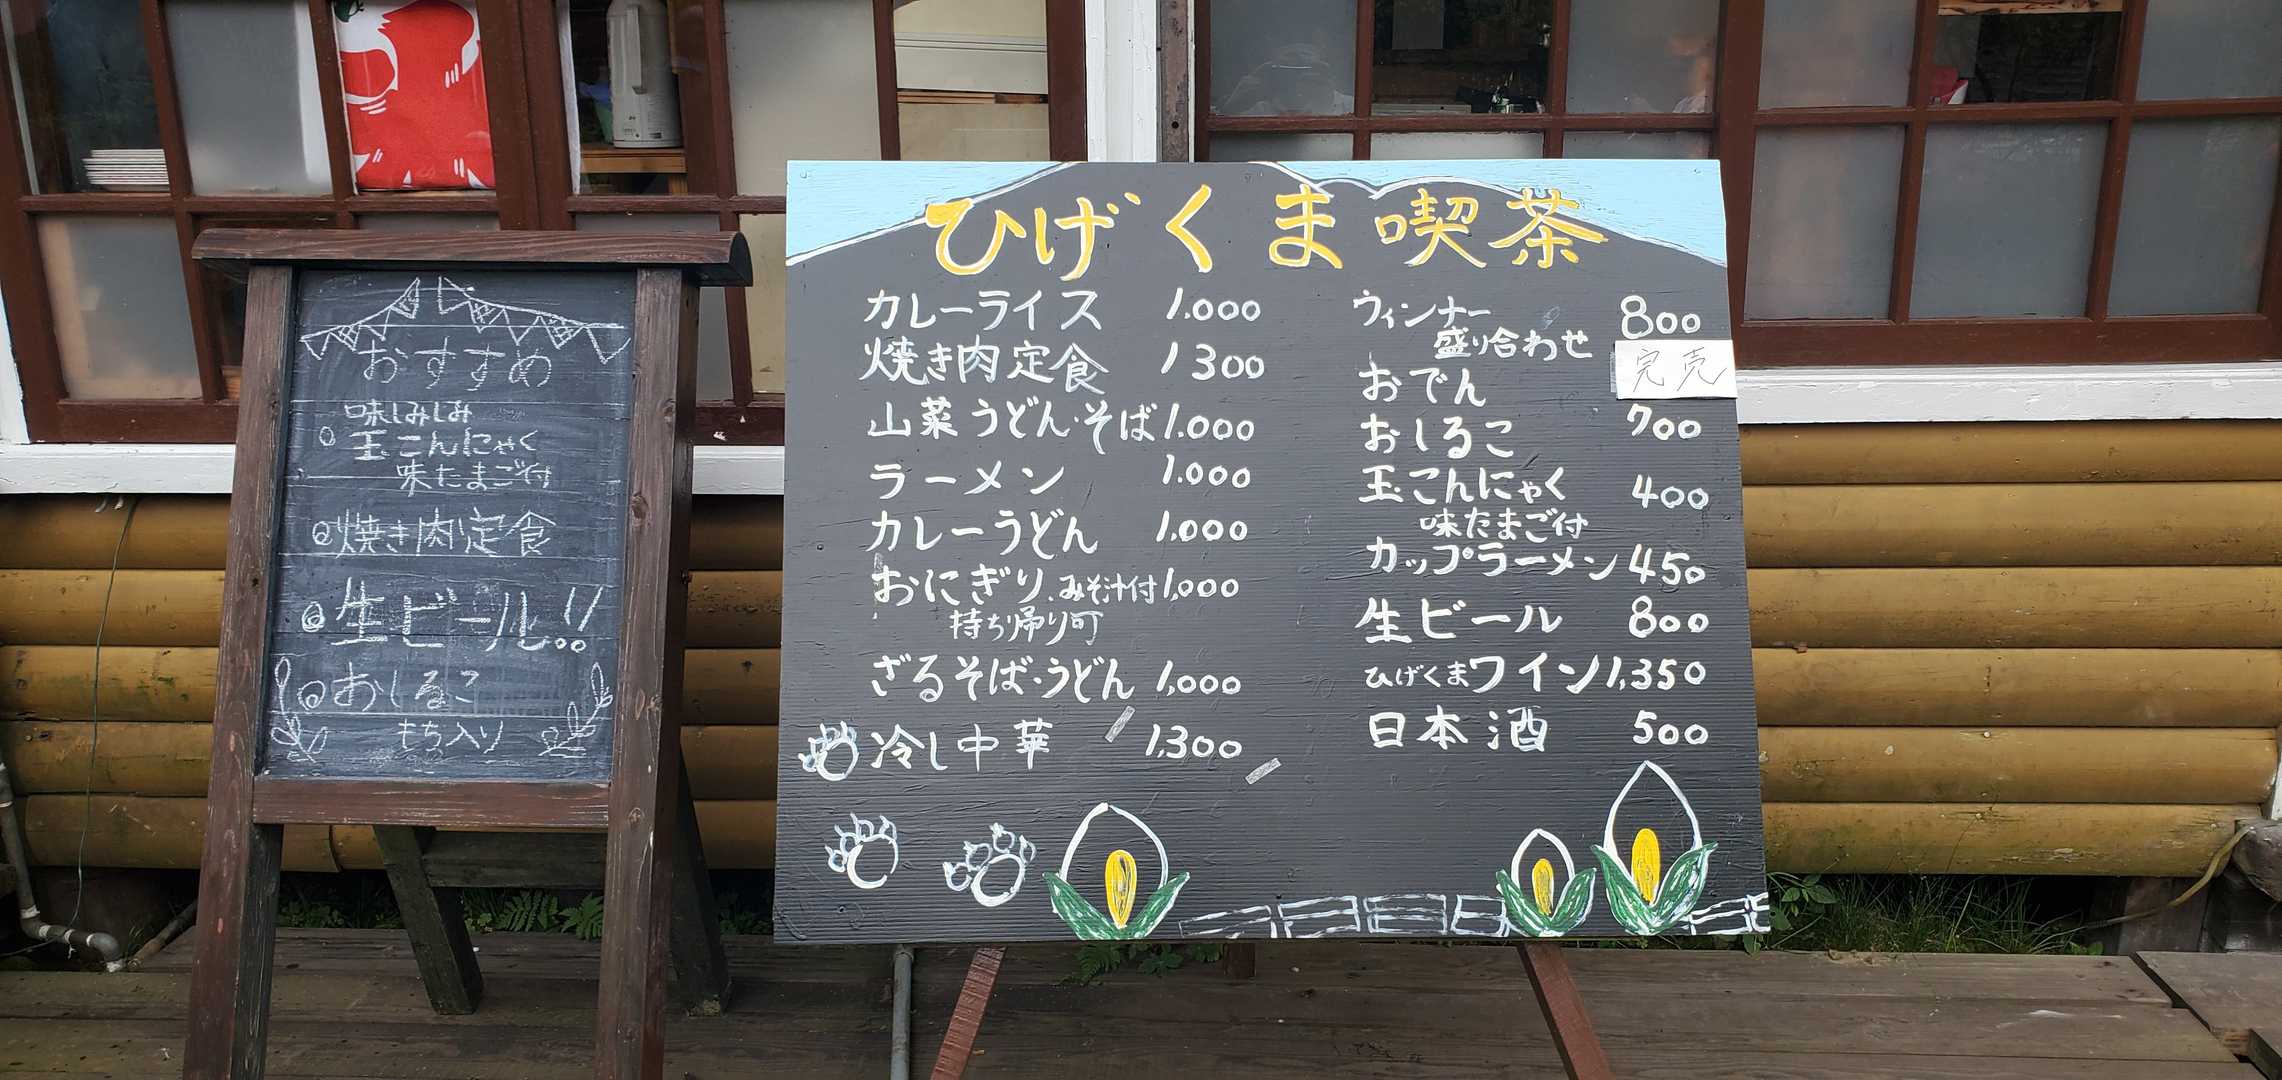 おすすめ
味しみしみ
○玉こんにゃく
味たまご付
◎焼き肉定食
◎生ビール!!
◎おしるこ
もち入り
ひげくま喫茶
カレーライス 1.000
焼き肉定食 1300
山菜うどん・そば 1.000
ラーメン 1.000
カレーうどん 1.000
おにぎり、みそ汁付 1,000
持ち帰り可
ざるそば・うどん 1,000
冷し中華 1,300
ウィンナー 800
盛り合わせ
おでん 完売
おしるこ 700
玉こんにゃく 400
味たまご付
カップラーメン 450
生ビール 800
ひげくまワイン 1,350
日本酒 500